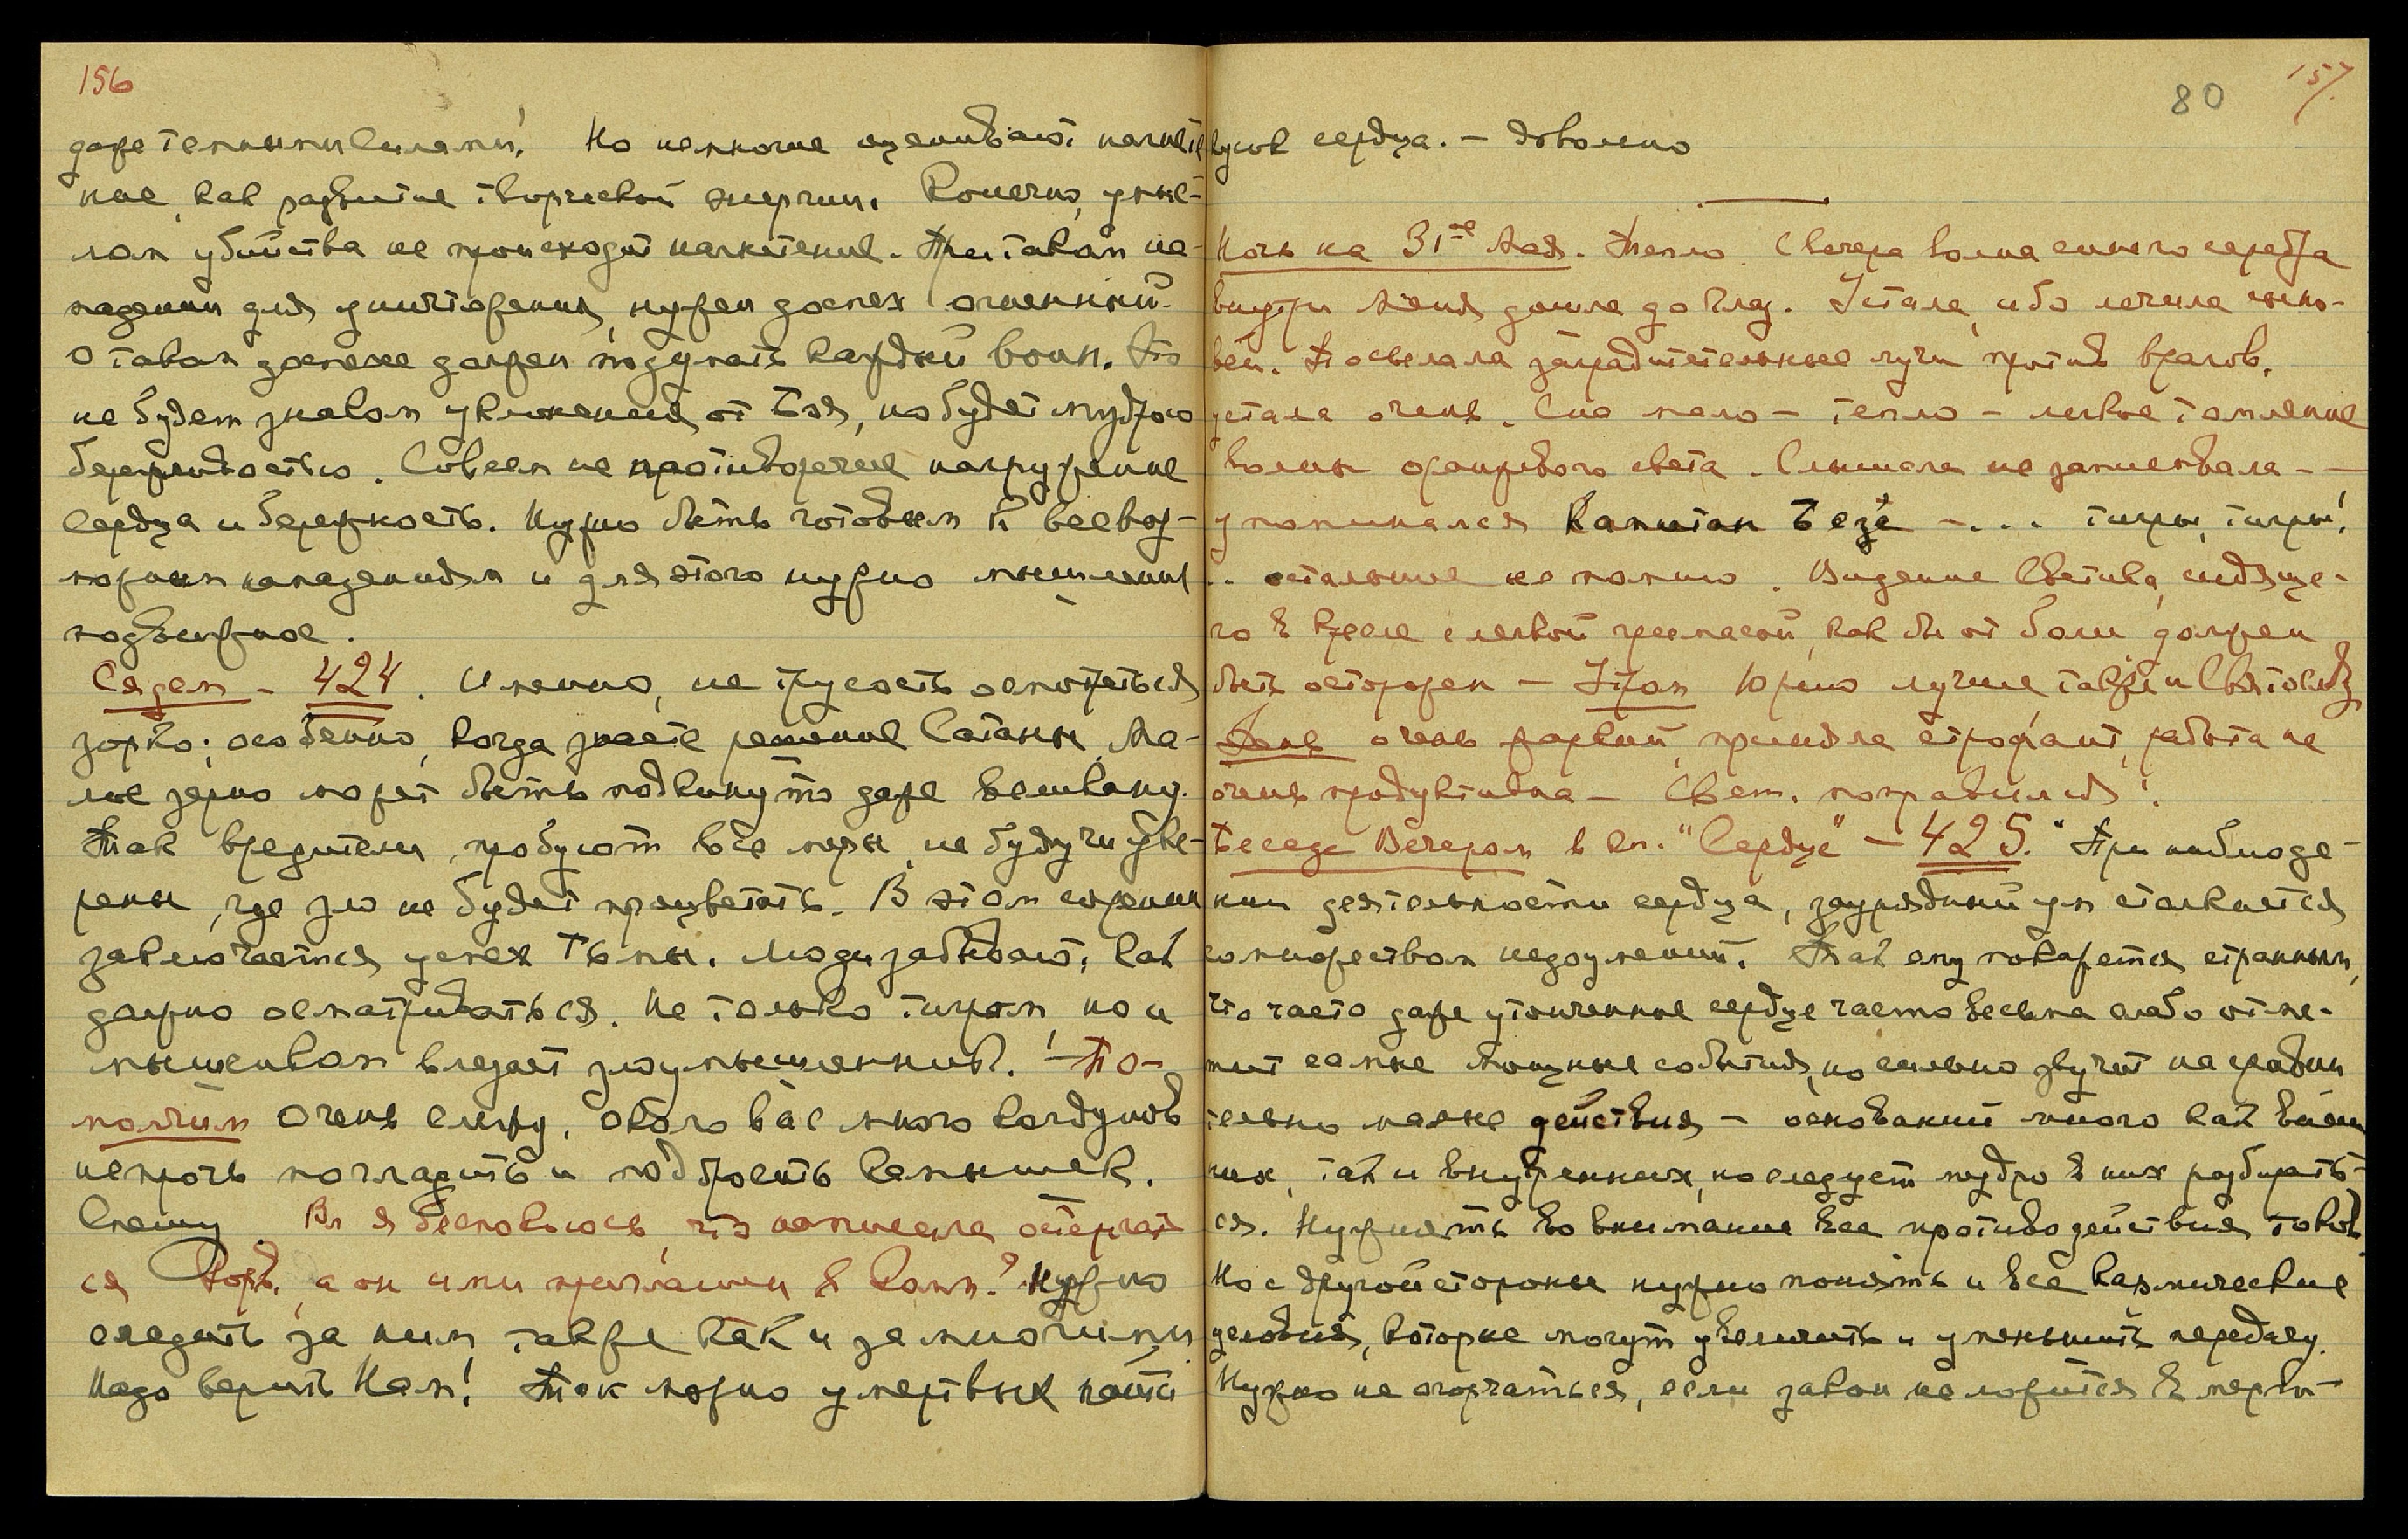 156
даже темными силами! Но немногие оценивают нагнете-
ние, как развитие творческой энергии. Конечно, умыс-
лом убийства не происходит нагнетение. При таком на-
падении для уничтожения, нужен доспех огненный.
О таком доспехе должен подумать каждый воин. Это
не будет знаком уклонения от Боя, но будет мудрою
бережливостью. Совсем не противоречие нагружение
Сердца и бережность. Нужно быть готовым к всевоз-
можным нападениям и для этого нужно мышление
подвижное.
Сядем - 424. Именно, не трусость осмотреться
зорко; особенно, когда знаете решение Сатаны. Ма-
лое зерно может быть подкинуто даже великану.
Так вредители пробуют все меры, не будучи уве-
рены, где зло не будет процветать. В этом
заключается успех Тьмы. Люди забывают, как
должно осматриваться. Не только тигром, но и
мышонком влезает злоумышленник. - По-
молчим Очень слежу, около вас много колдунов
непрочь погладить и подбросить камышек.
Спешу Вл я беспокоюсь, что написала остерегат
ся , а он ими приглашен в Комм.? Нужно
следить за ним также как и за многими
Надо верить Нам! Так можно умертвых почти
80 157.
кусок сердца. - Довольно
Ночь на 31ое Мая. Тепло. С вечера волна синего серебра
внутри меня дошла до глаз. Устала, ибо лечила сыно-
вей. Посылала заградительные лучи против врагов,
устала очень. Сна мало - тепло - легкое томление
волны оранжевого света. Слышала не запомнвала - -
упоминался Капитан Безе - ... тигры, тигры!
.. остальное не помню. Видение Светика, сидяще-
го в кресле с легкой гримасой, как бы от боли должен
быть осторожен - Утром Юрию лучше, также и Святосл.
День очень жаркий, приняла строфант, работа не
очень продуктивна - Свет. поправился!
Беседа Вечером в кн. "Сердце" - 425. "При наблюде-
нии деятельности сердца, заурядный ум сталкивается
со множеством недоумений. Так ему покажется странным,
что часто даже утонченное сердце часто весьма слабо отме-
тит самые мощные события, но сильно звучит на сравни
тельно малые действия - оснований много как внеш
них, так и внутренних, но следует мудро в них разбирать-
ся. Нужно принять во внимание все противодействия токов.
Но с другой стороны нужно понять и все кармические
условия, которые могут увеличить и уменьшить передачу.
Нужно не огорчаться, если закон не ложится в мерки-